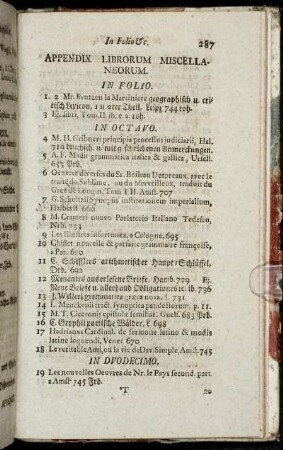 In Folio &c.
287
APPENDIX LIBRORUM MISCELLA-
NEORUM.
IN FOLIO.
1. 2 Mr. la Martiniere geographisch u. cri-
tisch Lexicon, 1 u 2ter Theil. Leipz 744 roh.
3 Ej. libri, Tom. II. ib. e. a. roh.
IN OCTAVO.
4 M. H. Gribneri principia processus judiciarii, Hal.
5 A. F. Madii grammatica italica & gallica, Ursell.
643 Prb.
6 Oeuvres diverses du Sr. Boileau Despreaux, avec le
traité du Sublime, ou du Merveilleux, traduit du
Grec de Longin, Tom I II. Amst. 707
7 G. Schultzii Synopsis institutionum imperialium,
Halberst 660
8 M. Crameri nuovo Parlatorio Italiano Tedesco,
Nrb. 733
9 Les Illustres infortunez, a Cologne, 695
10 Chiflet nouvelle & parfaite grammaire françoise,
a Par. 680
11 C. Schesslers arithmetischer Haupt-Schlüssel,
Drd. 692
12 Menantes auserlesene Briefe. Hamb. 729 Ej.
Neue Briefe u. allerhand Obligationes ic. ib. 736
13 J. Welleri grammatica græca nova. l. 731
14 L. Menckenii tract. synoptica pandectarum, p. 11.
15 M. T. Ciceronis epistolæ familiar. Guelf. 683 Prb.
16 C. Gryphii poetische Wälder, L 698
17 Hadrianus Cardinal. de sermone latino & modis
latine loquendi, Venet 670
18 Le veritable Ami, ou la vie de Dav. Simple, Amst. 745
IN DUODECIMO.
19 Les nouvelles Oeuvres de Mr. le Pays second. part.
a Amst 745 Frb.
*T
20